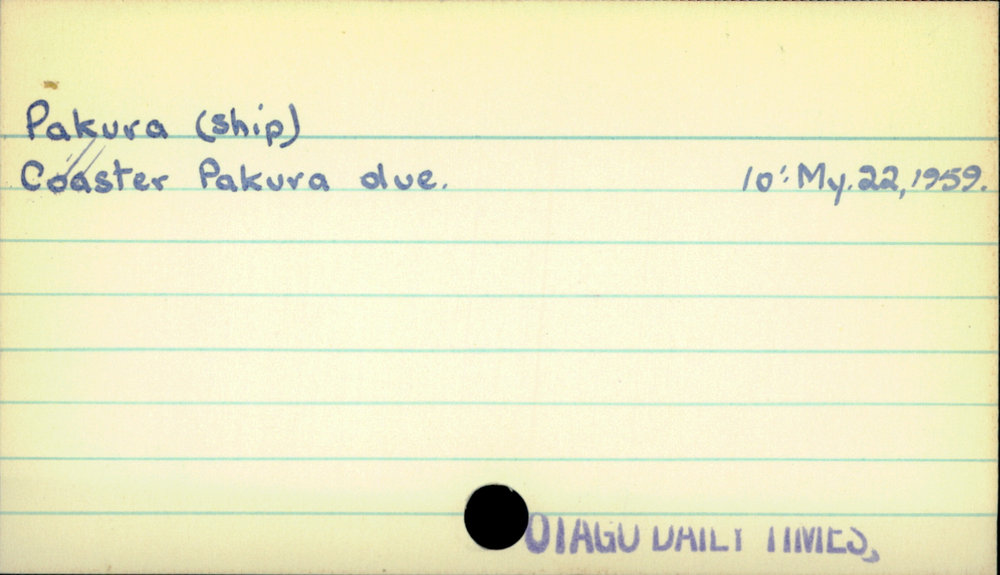 Pakura (ship)
Coaster Pakura due. 10: My. 22, 1959.
OTAGO DAILY TIMES,